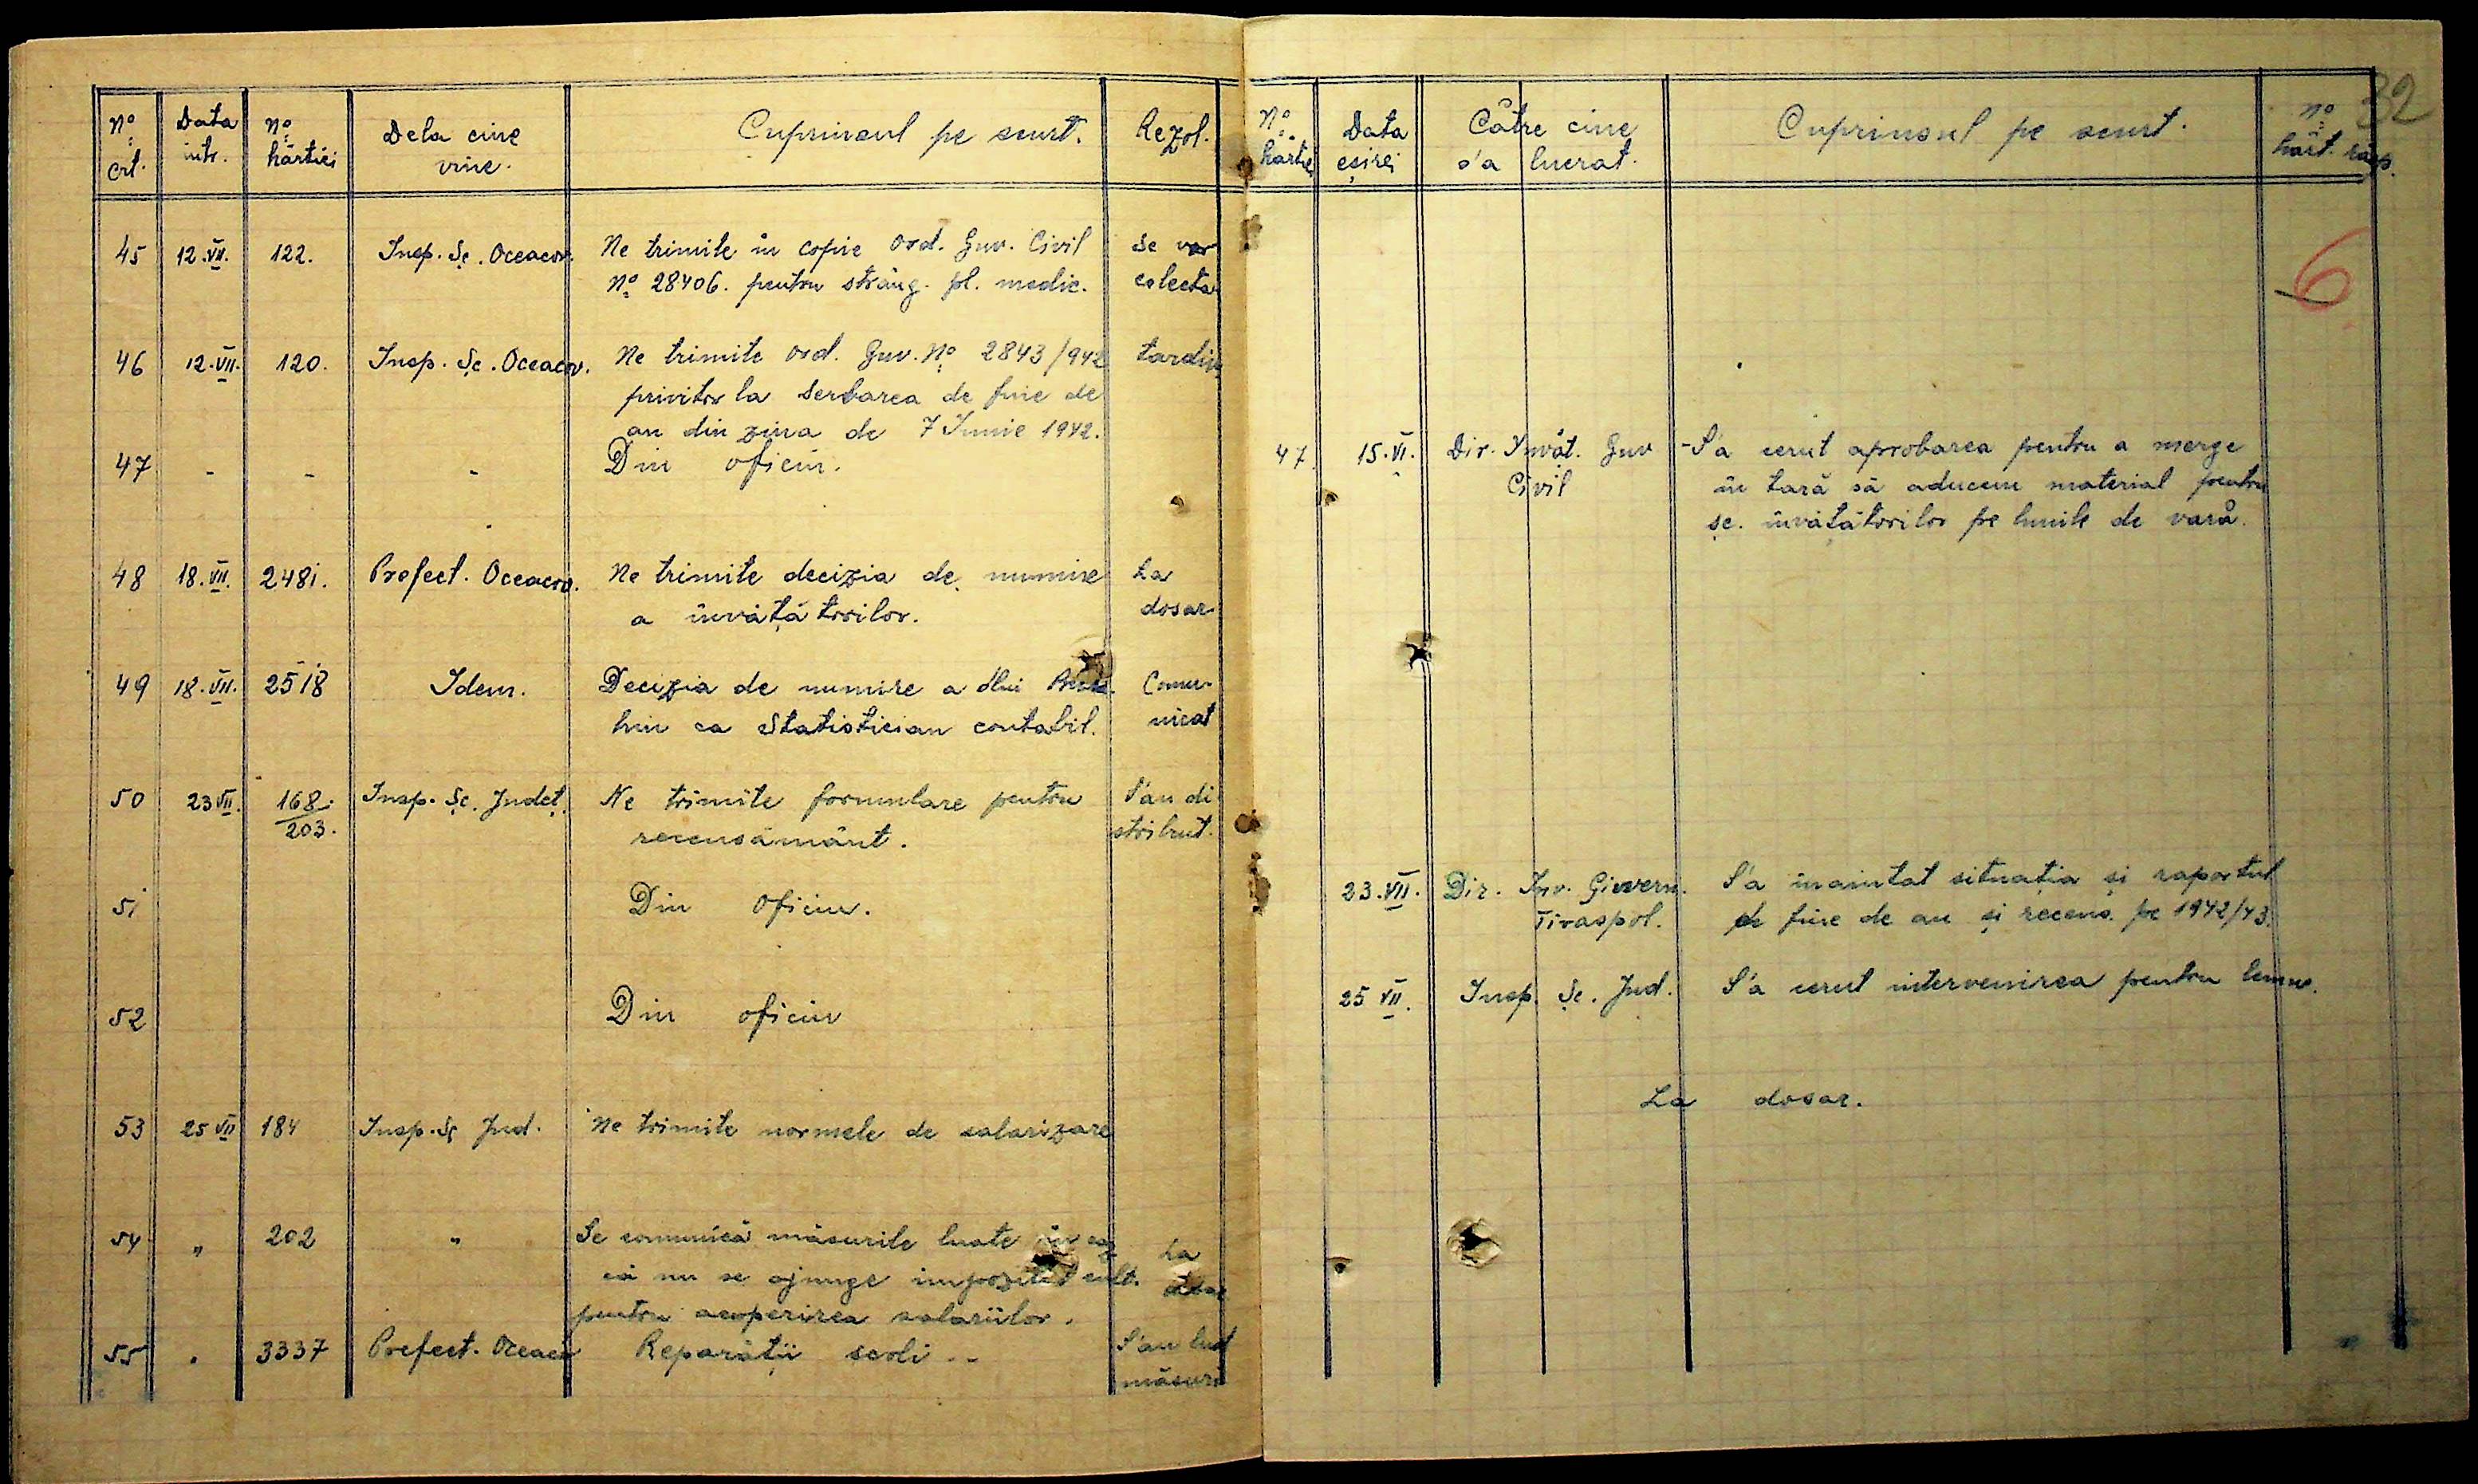 Nº crt.
Data intr.
Nº hârtiei
Dela cine vine.
Cuprinsul pe scurt.
Rezol.
45 12.VII. 122. Insp. Șc. Oceacov. Ne trimite în copie ord. Guv. Civil Se vor
Nº 28406. pentru strâng. pl. medic. colecta
46 12.VII. 120. Insp. Șc. Oceacov. Ne trimite ord. Guv. Nº 2843/942 tardiv
privitor la serbarea de fine de
an din ziua de 7 Iunie 1942.
47 - - - Din oficiu.
48 18.VII. 2481. Prefect. Oceacov. Ne trimite decizia de numire La
a învățătorilor. dosar
49 18.VII. 2518 Idem. Decizia de numire a dlui Comu-
hin ca Statistician contabil. nicat
50 23 VII. 168. Insp. Șc. Județ. Ne trimite formulare pentru S'au di
203. recensământ. stribut.
51 Din oficiu.
52 Din oficiu
53 25 VII 184 Insp. Șc Jud. Ne trimite normele de salarizare
54 „ 202 „ Se comunică măsurile luate în caz La
că nu se ajunge impozitul cult.
pentru acoperirea salariilor.
55 . 3337 Prefect. Oceaco Reparații scoli -- S'au luat
măsuri
32
Nº hartiei
Data eșirei
Câtre cine s'a lucrat.
Cuprinsul pe scurt.
Nº hârt. răsp.
6
47. 15.VI. Dir. Învăt. Guv - S'a cerut aprobarea pentru a merge
Civil în tară să aducem material pentru
șc. învățătorilor pe lunile de vară.
23.VII. Dir. Înv. Guvern. S'a înaintat situația și raportul
Tiraspol. de fine de an și recens. pe 1942/43.
25 VII. Insp. Șc. Jud. S'a cerut intervenirea pentru lemne.
La dosar.